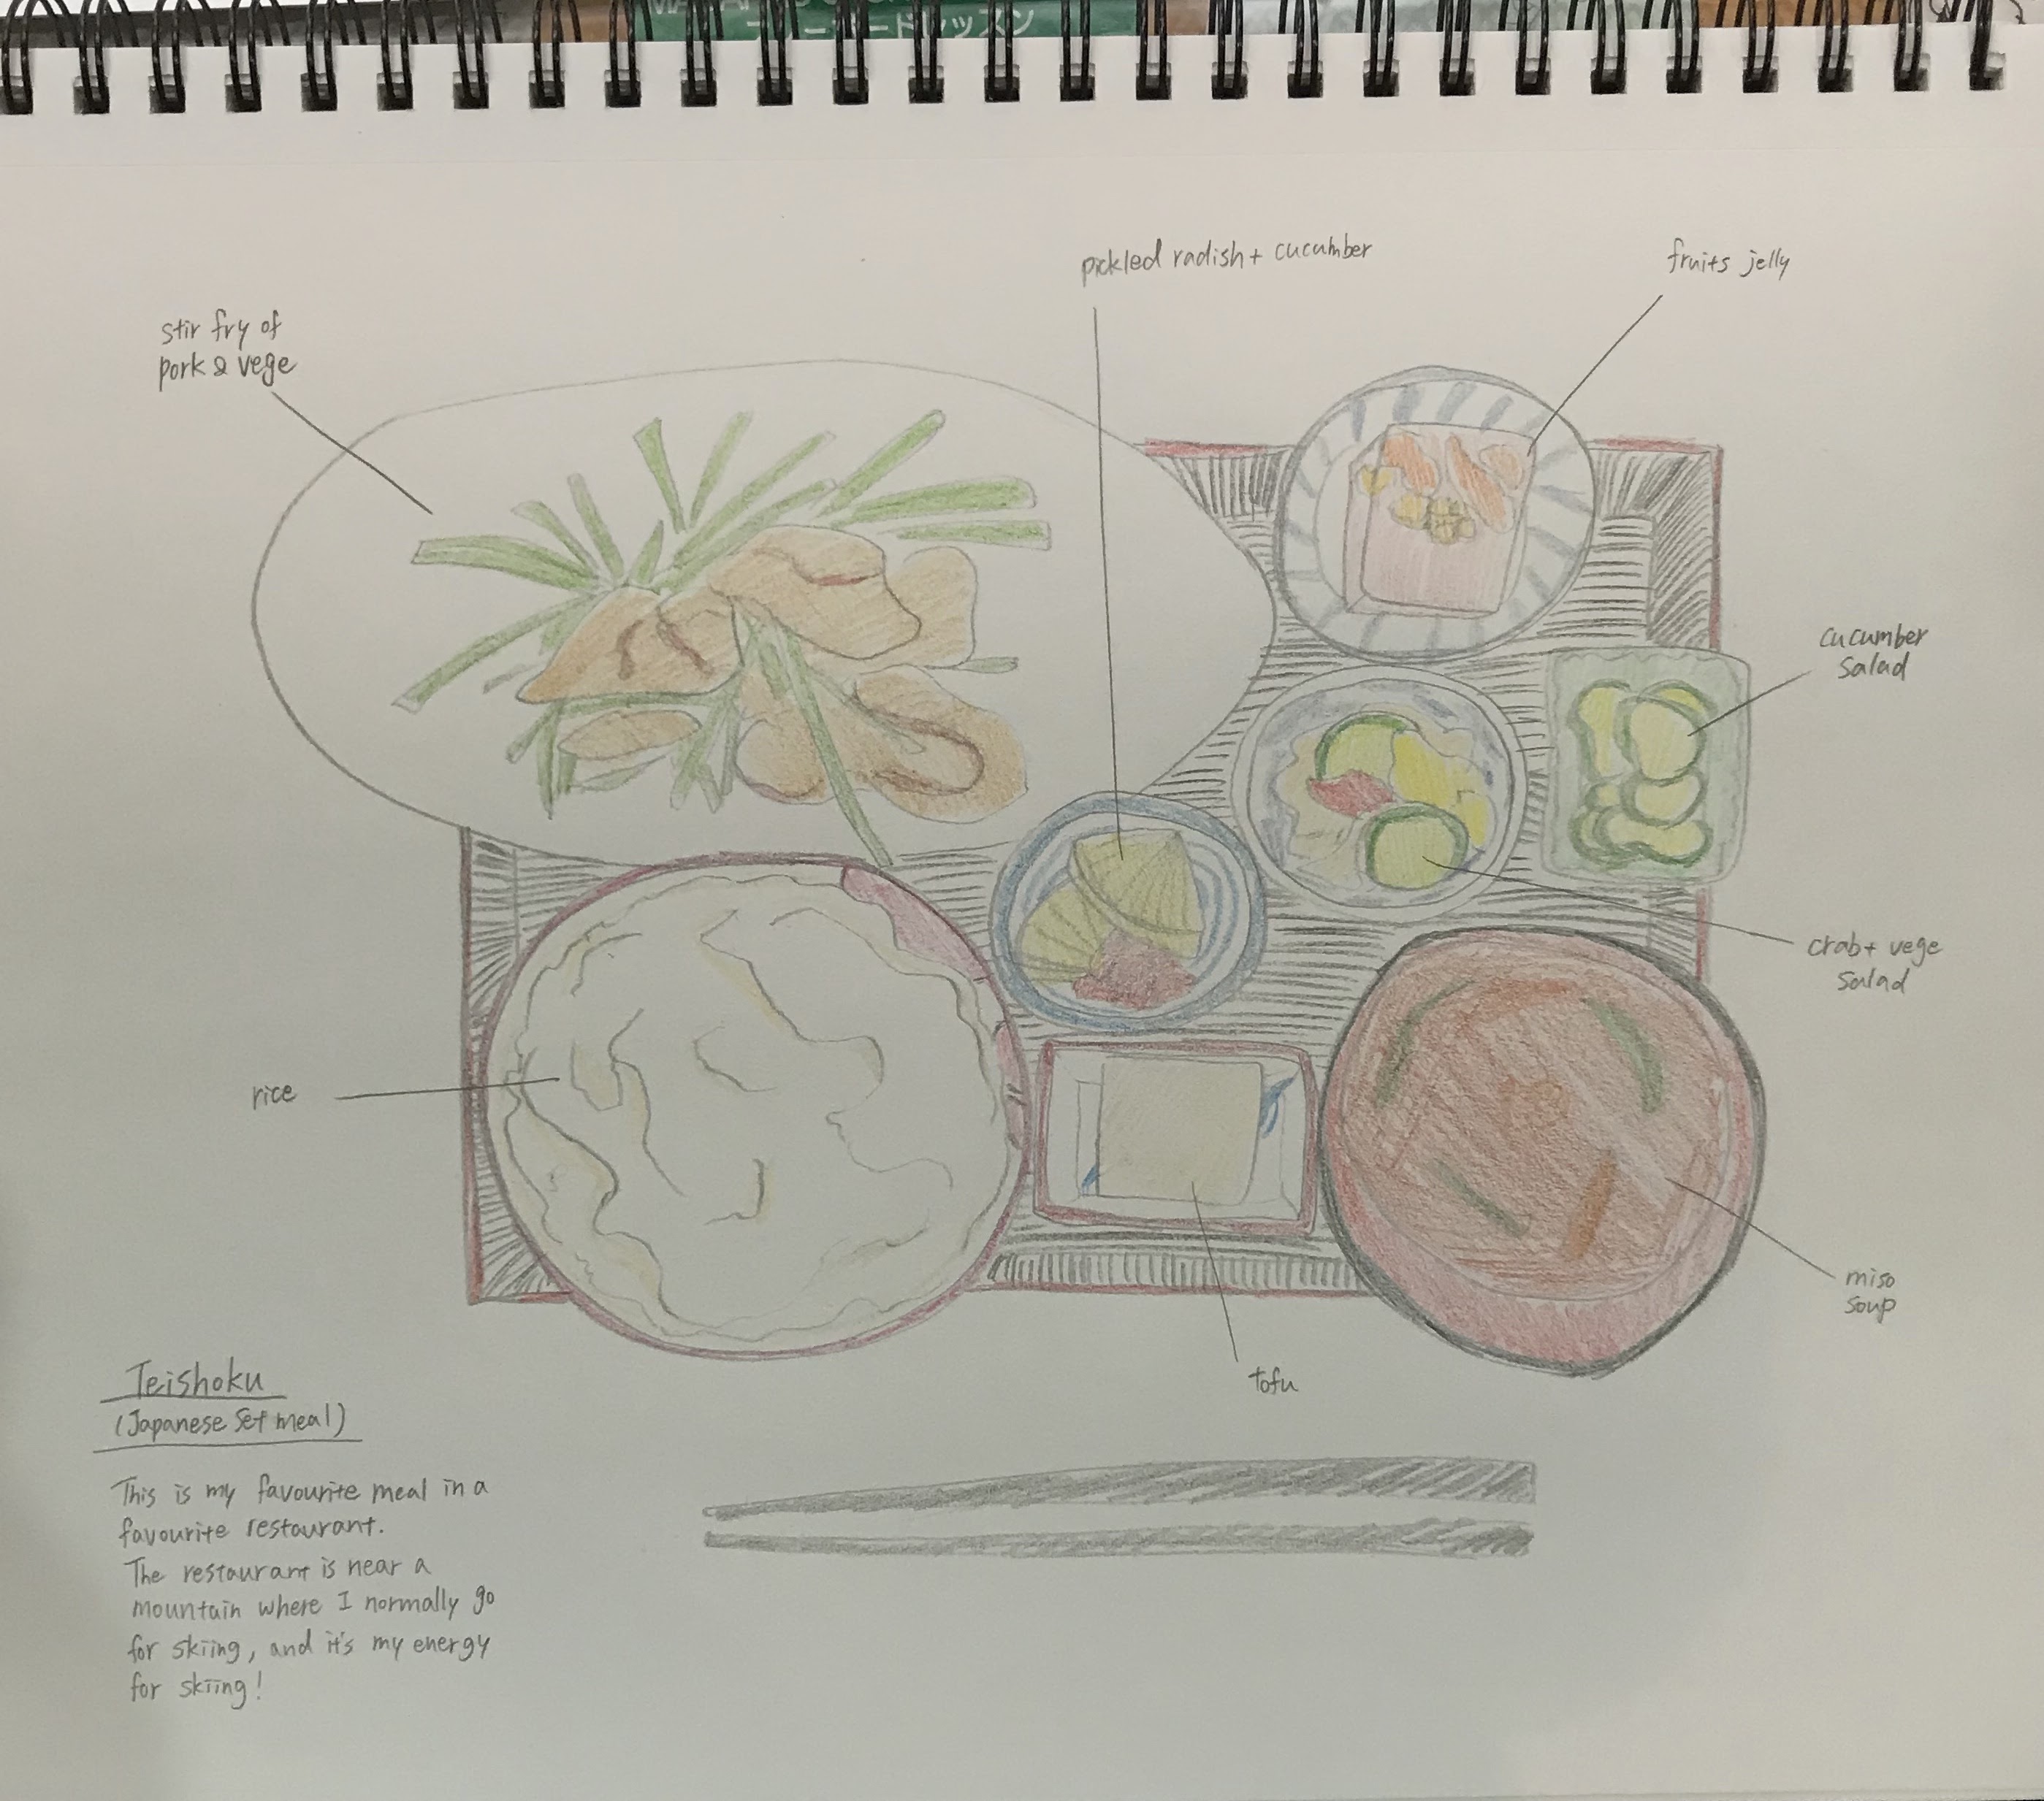 ードレッスン
pickled radish + cucumber
fruits jelly
stir fry of
pork & vege
cucumber
salad
crab + vege
salad
rice
miso
soup
tofu
Teishoku
(Japanese set meal)
This is my favourite meal in a
favourite restaurant.
The restaurant is near a
mountain where I normally go
for skiing, and it's my energy
for skiing!